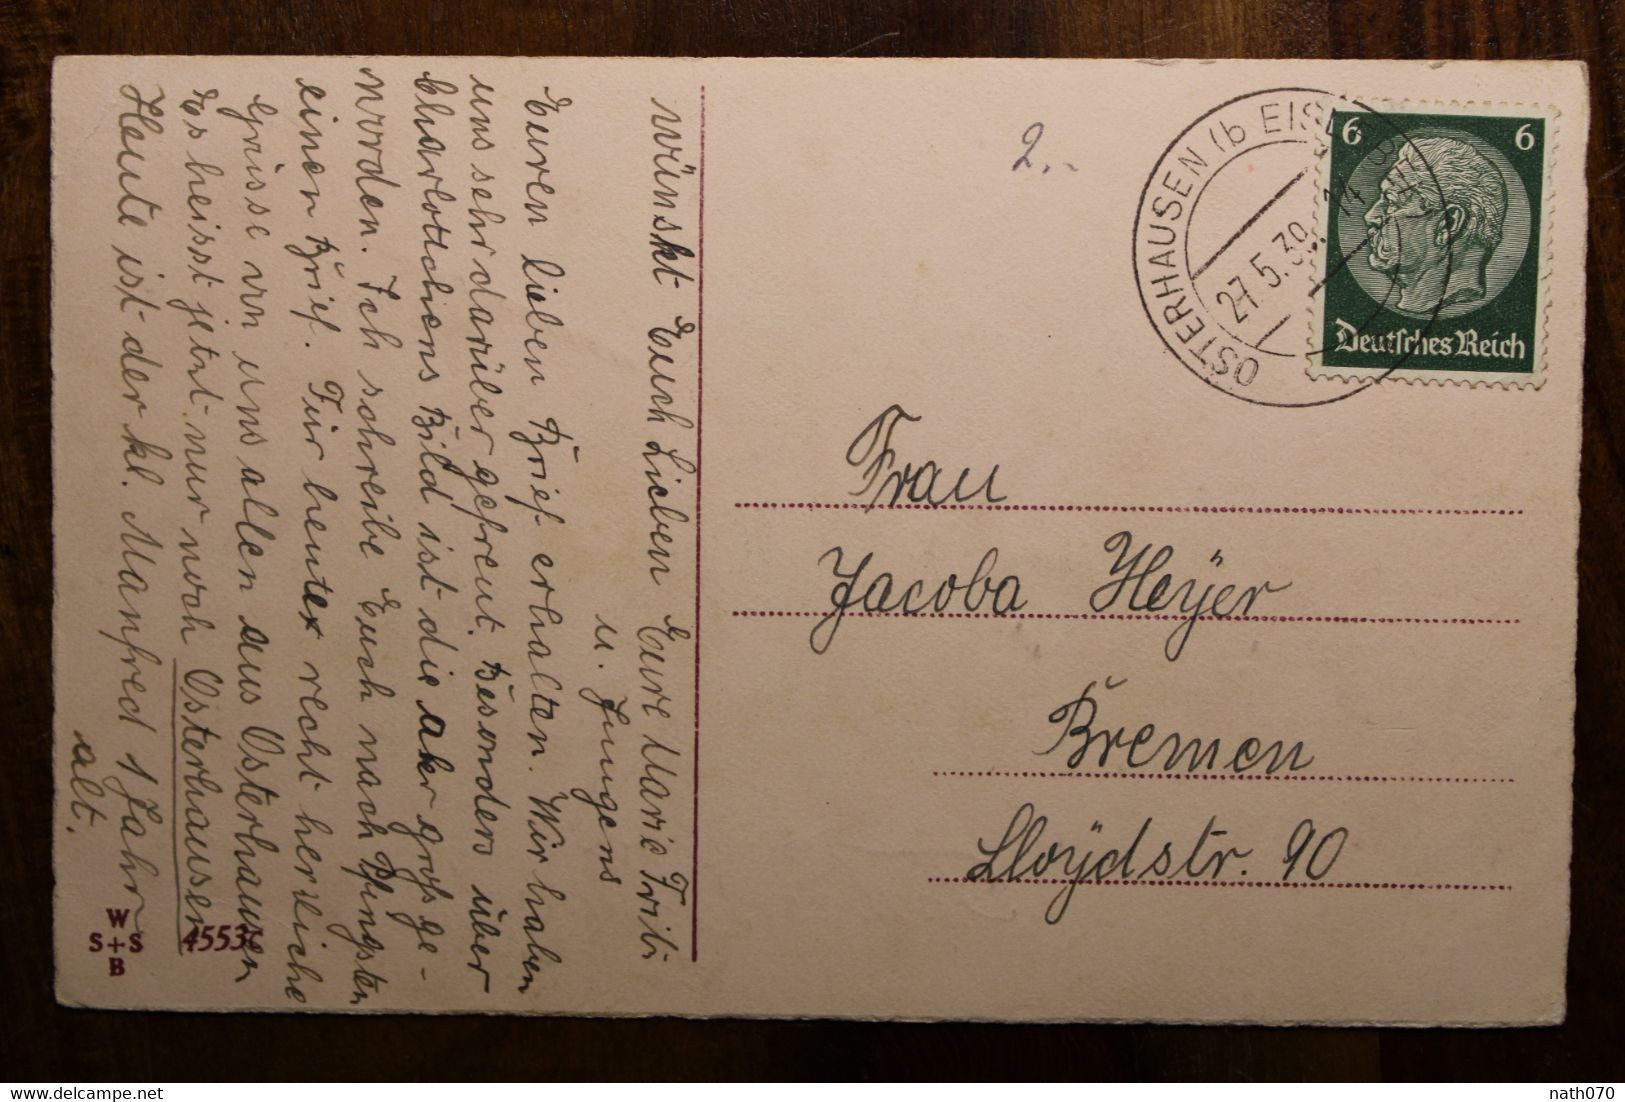 wünskt Euch Lieben Eure Marie Fritz
u. Jungens
Euren lieben Brief erhalten. Wir haben
uns sehr darüber gefreut. Besonders über
Charlottchens Bild ist die aber gross ge-
worden. Ich schreibe Euch nach Pfingsten
einen Brief. Für heute recht herzliche
Grüsse von uns allen aus Osterhausen
Es heisst jetzt nur noch Osterhausen
Heute ist der kl. Manfred 1 Jahr
alt.
W
S+S
B
OSTERHAUSEN (b EISLEBEN)
27.5.39. 14
6 6
Deutsches Reich
2.-
Frau
Jacoba Heÿer
Bremen
Lloÿdstr. 90
delcampe.net
nath070